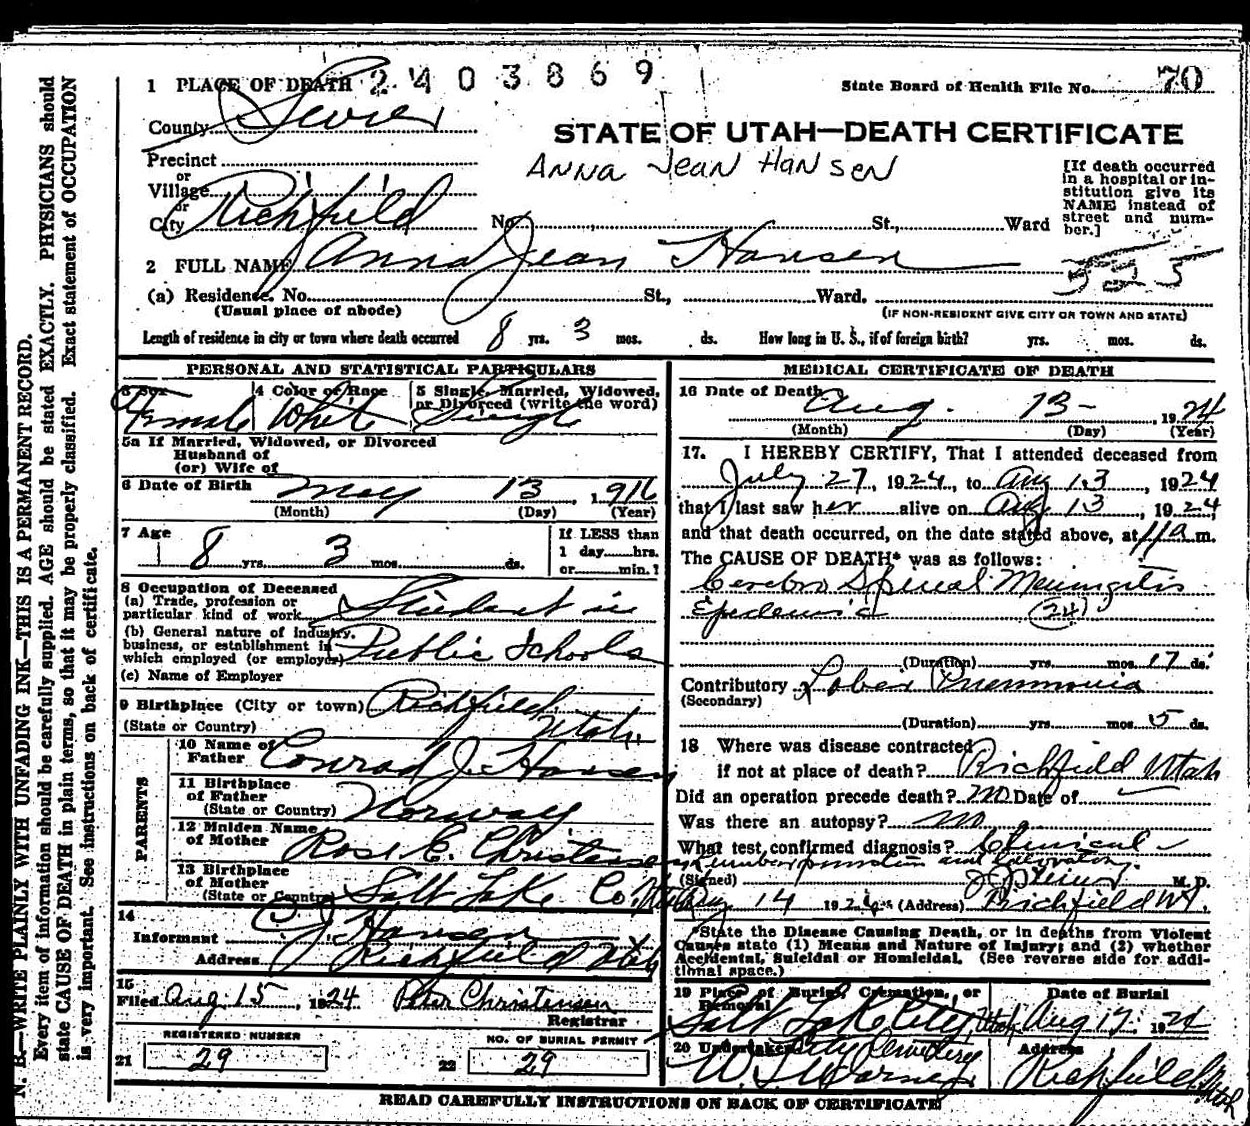 2403869
State Board of Health File No. 70
1 PLACE OF DEATH
County Sevier
STATE OF UTAH—DEATH CERTIFICATE
ANNA JEAN HANSEN
Precinct
or
Village
or
City Richfield No. St., Ward
[If death occurred
in a hospital or in-
stitution give its
NAME instead of
street and num-
ber.]
2 FULL NAME Anna Jean Hansen
525
(a) Residence. No. St., Ward.
(Usual place of abode)
(IF NON-RESIDENT GIVE CITY OR TOWN AND STATE)
Length of residence in city or town where death occurred 8 yrs. 3 mos. ds. How long in U. S., if of foreign birth? yrs. mos. ds.
PERSONAL AND STATISTICAL PARTICULARS
3 Sex 4 Color or Race 5 Single, Married, Widowed,
or Divorced (write the word)
Female White Single
5a If Married, Widowed, or Divorced
Husband of
(or) Wife of
6 Date of Birth May 13, 1916
(Month) (Day) (Year)
7 Age 8 yrs. 3 mos. ds.
If LESS than
1 day hrs.
or min.?
8 Occupation of Deceased
(a) Trade, profession or
particular kind of work Student in
(b) General nature of industry,
business, or establishment in
which employed (or employer) Public Schools
(c) Name of Employer
9 Birthplace (City or town) Richfield
(State or Country) Utah.
PARENTS
10 Name of
Father Conrad J. Hansen
11 Birthplace
of Father
(State or Country) Norway
12 Maiden Name
of Mother Rose E. Christensen
13 Birthplace
of Mother
(State or Country) Salt Lake Co. Utah
14
Informant C J Hansen
Address Richfield Utah
15
Filed Aug 15, 1924 Peter Christensen
Registrar
REGISTERED NUMBER
21 29
NO. OF BURIAL PERMIT
22 29
MEDICAL CERTIFICATE OF DEATH
16 Date of Death Aug. 13- 1924
(Month) (Day) (Year)
17. I HEREBY CERTIFY, That I attended deceased from
July 27, 1924, to Aug 13, 1924
that I last saw her alive on Aug 13, 1924,
and that death occurred, on the date stated above, at 11 a m.
The CAUSE OF DEATH* was as follows:
Cerebro Spinal Meningitis
Epidemic (24)
(Duration) yrs. mos. 17 ds.
Contributory Lobar Pneumonia
(Secondary)
(Duration) yrs. mos. 5 ds.
18 Where was disease contracted
if not at place of death? Richfield Utah
Did an operation precede death? no Date of
Was there an autopsy? no
What test confirmed diagnosis? Clinical
lumbar puncture and laboratory
(Signed) M. D.
Aug 14 1924 (Address) Richfield Ut.
*State the Disease Causing Death, or in deaths from Violent
Causes state (1) Means and Nature of Injury; and (2) whether
Accidental, Suicidal or Homicidal. (See reverse side for addi-
tional space.)
19 Place of Burial, Cremation, or
Removal
Date of Burial
Salt Lake City, Utah Aug 17, 1924
City Cemetery
20 Undertaker Address
Richfield, Utah
READ CAREFULLY INSTRUCTIONS ON BACK OF CERTIFICATE
N. B.—WRITE PLAINLY WITH UNFADING INK—THIS IS A PERMANENT RECORD.
Every item of information should be carefully supplied. AGE should be stated EXACTLY. PHYSICIANS should
state CAUSE OF DEATH in plain terms, so that it may be properly classified. Exact statement of OCCUPATION
is very important. See instructions on back of certificate.